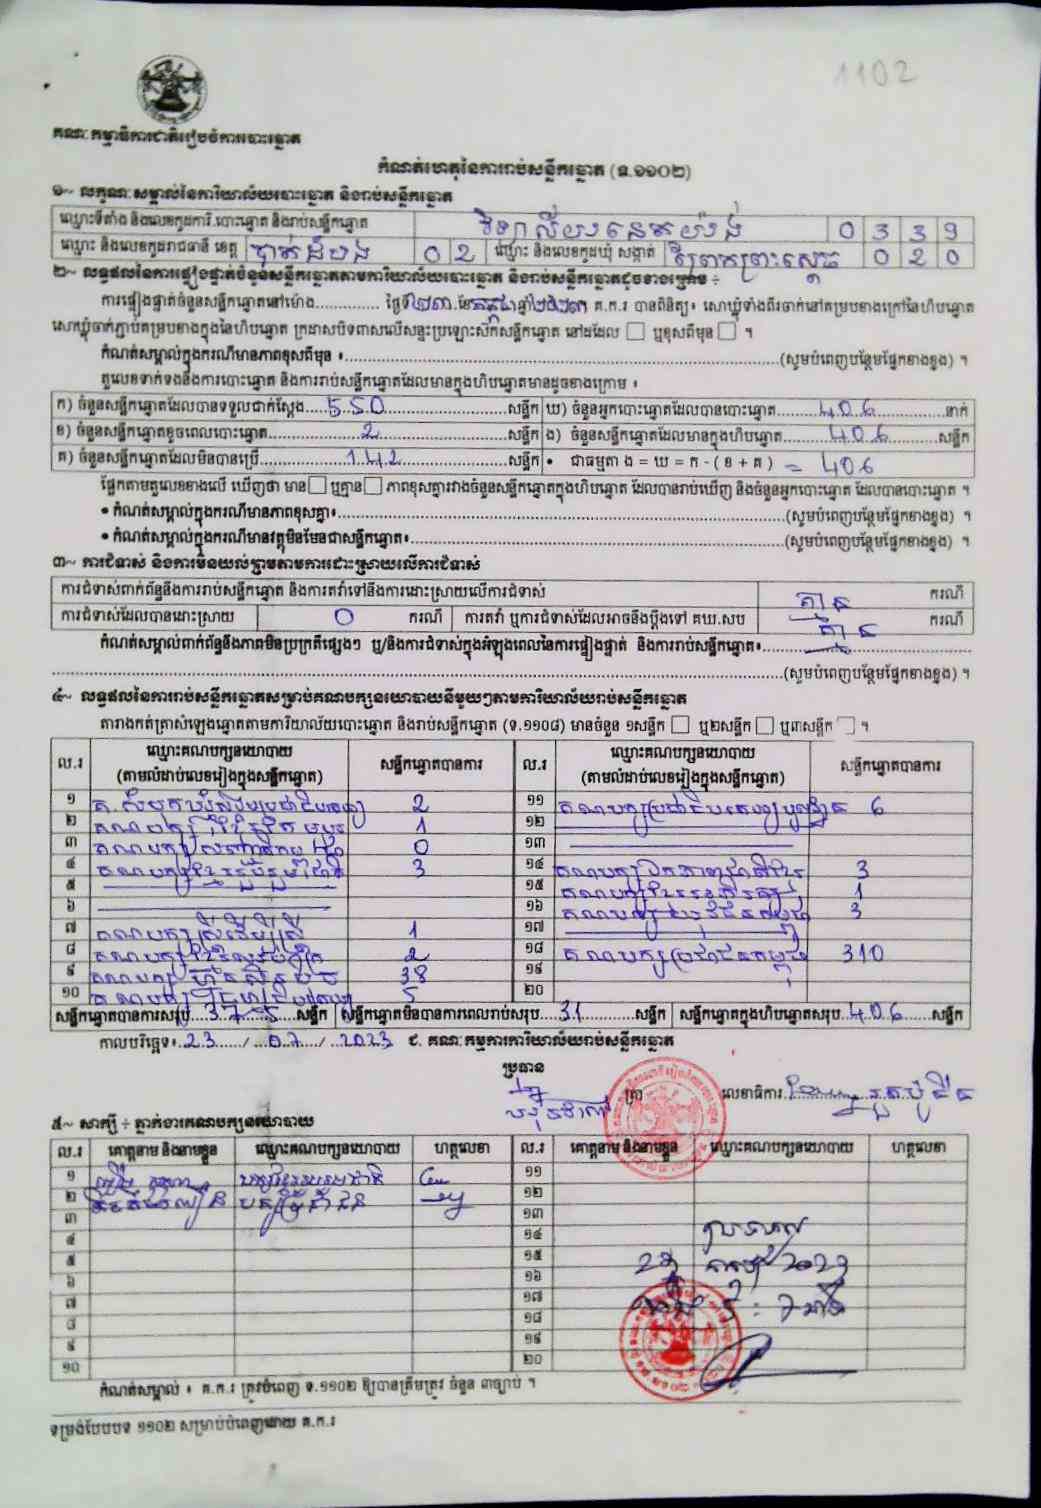 1102
គណៈកម្មាធិការជាតិរៀបចំការបោះឆ្នោត
កំណត់ហេតុនៃការរាប់សន្លឹកឆ្នោត (ទ.១១០២)
១~ លក្ខណៈសម្គាល់នៃការិយាល័យបោះឆ្នោត និងរាប់សន្លឹកឆ្នោត
ឈ្មោះទីតាំង និងលេខកូដការិ.បោះឆ្នោត និងរាប់សន្លឹកឆ្នោត វិទ្យាល័យ នេតយ៉ង់ 0 3 3 9
ឈ្មោះ និងលេខកូដរាជធានី ខេត្ត បាត់ដំបង 0 2 ឈ្មោះ និងលេខកូដឃុំ សង្កាត់ ព្រែកព្រះស្តេច 0 2 0
២~ លទ្ធផលនៃការផ្ទៀងផ្ទាត់ចំនួនសន្លឹកឆ្នោតតាមការិយាល័យបោះឆ្នោត និងរាប់សន្លឹកឆ្នោតដូចខាងក្រោម ÷
ការផ្ទៀងផ្ទាត់ចំនួនសន្លឹកឆ្នោតនៅម៉ោង............ ថ្ងៃទី២៣.ខែកក្កដា ឆ្នាំ២០២៣ គ.ក.រ បានពិនិត្យ៖ សោឃ្នុំទាំងពីរចាក់នៅគម្របខាងក្រៅនៃហិបឆ្នោត
សោឃ្នុំចាក់ភ្ជាប់គម្របខាងក្នុងនៃហិបឆ្នោត ក្រដាសបិទពាសលើសន្ទះប្រឡោះស៊កសន្លឹកឆ្នោត នៅដដែល □ ឬខុសពីមុន □ ។
កំណត់សម្គាល់ក្នុងករណីមានភាពខុសពីមុន ៖............(សូមបំពេញបន្ថែមផ្នែកខាងខ្នង) ។
តួលេខទាក់ទងនឹងការបោះឆ្នោត និងការរាប់សន្លឹកឆ្នោតដែលមានក្នុងហិបឆ្នោតមានដូចខាងក្រោម ៖
ក) ចំនួនសន្លឹកឆ្នោតដែលបានទទួលជាក់ស្តែង....550....សន្លឹក ឃ) ចំនួនអ្នកបោះឆ្នោតដែលបានបោះឆ្នោត....406....នាក់
ខ) ចំនួនសន្លឹកឆ្នោតខូចពេលបោះឆ្នោត....2....សន្លឹក ង) ចំនួនសន្លឹកឆ្នោតដែលមានក្នុងហិបឆ្នោត....406....សន្លឹក
គ) ចំនួនសន្លឹកឆ្នោតដែលមិនបានប្រើ....142....សន្លឹក • ជាធម្មតា ង = ឃ = ក - ( ខ + គ ) = 406
ផ្អែកតាមតួលេខខាងលើ ឃើញថា មាន□ ឬគ្មាន□ ភាពខុសគ្នារវាងចំនួនសន្លឹកឆ្នោតក្នុងហិបឆ្នោត ដែលបានរាប់ឃើញ និងចំនួនអ្នកបោះឆ្នោត ដែលបានបោះឆ្នោត ។
• កំណត់សម្គាល់ក្នុងករណីមានភាពខុសគ្នា៖............(សូមបំពេញបន្ថែមផ្នែកខាងខ្នង) ។
• កំណត់សម្គាល់ក្នុងករណីមានវត្ថុមិនមែនជាសន្លឹកឆ្នោត៖............(សូមបំពេញបន្ថែមផ្នែកខាងខ្នង) ។
៣~ ការជំទាស់ និងការមិនយល់ព្រមតាមការដោះស្រាយលើការជំទាស់
ការជំទាស់ពាក់ព័ន្ធនឹងការរាប់សន្លឹកឆ្នោត និងការតវ៉ាទៅនឹងការដោះស្រាយលើការជំទាស់ គ្មាន ករណី
ការជំទាស់ដែលបានដោះស្រាយ 0 ករណី ការតវ៉ា ឬការជំទាស់ដែលអាចនឹងប្តឹងទៅ គឃ.សប គ្មាន ករណី
កំណត់សម្គាល់ពាក់ព័ន្ធនឹងភាពមិនប្រក្រតីផ្សេងៗ ឬ/និងការជំទាស់ក្នុងអំឡុងពេលនៃការផ្ទៀងផ្ទាត់ និងការរាប់សន្លឹកឆ្នោត៖............
............(សូមបំពេញបន្ថែមផ្នែកខាងខ្នង) ។
៤~ លទ្ធផលនៃការរាប់សន្លឹកឆ្នោតសម្រាប់គណបក្សនយោបាយនីមួយៗតាមការិយាល័យរាប់សន្លឹកឆ្នោត
តារាងកត់ត្រាសំឡេងឆ្នោតតាមការិយាល័យបោះឆ្នោត និងរាប់សន្លឹកឆ្នោត (ទ.១១០៨) មានចំនួន ១សន្លឹក □ ឬ២សន្លឹក □ ឬ៣សន្លឹក □ ។
ល.រ ឈ្មោះគណបក្សនយោបាយ (តាមលំដាប់លេខរៀងក្នុងសន្លឹកឆ្នោត) សន្លឹកឆ្នោតបានការ ល.រ ឈ្មោះគណបក្សនយោបាយ (តាមលំដាប់លេខរៀងក្នុងសន្លឹកឆ្នោត) សន្លឹកឆ្នោតបានការ
១ 2 ១១ 6
២ 1 ១២
៣ 0 ១៣
៤ 3 ១៤ 3
៥ ១៥ 1
៦ ១៦ 3
៧ គណបក្សស្រីដើម្បីស្រី 1 ១៧
៨ 2 ១៨ គណបក្សប្រជាជនកម្ពុជា 310
៩ គណបក្សហ៊្វុនស៊ិនប៉ិច 38 ១៩
១០ 5 ២០
សន្លឹកឆ្នោតបានការសរុប..375..សន្លឹក សន្លឹកឆ្នោតមិនបានការពេលរាប់សរុប...31...សន្លឹក សន្លឹកឆ្នោតក្នុងហិបឆ្នោតសរុប..406..សន្លឹក
កាលបរិច្ឆេទ៖..23../..07../..2023 ៥. គណៈកម្មការការិយាល័យរាប់សន្លឹកឆ្នោត
ប្រធាន
លេខាធិការ
៥~ សាក្សី ÷ ភ្នាក់ងារគណបក្សនយោបាយ
ល.រ គោត្តនាម និងនាមខ្លួន ឈ្មោះគណបក្សនយោបាយ ហត្ថលេខា ល.រ គោត្តនាម និងនាមខ្លួន ឈ្មោះគណបក្សនយោបាយ ហត្ថលេខា
១ ១១
២ ១២
៣ ១៣
៤ ១៤
៥ ១៥
៦ ១៦
៧ ១៧
៨ ១៨
៩ ១៩
១០ ២០
កំណត់សម្គាល់ ៖ គ.ក.រ ត្រូវបំពេញ ទ.១១០២ ឱ្យបានត្រឹមត្រូវ ចំនួន ៣ច្បាប់ ។
ទម្រង់បែបបទ ១១០២ សម្រាប់បំពេញដោយ គ.ក.រ